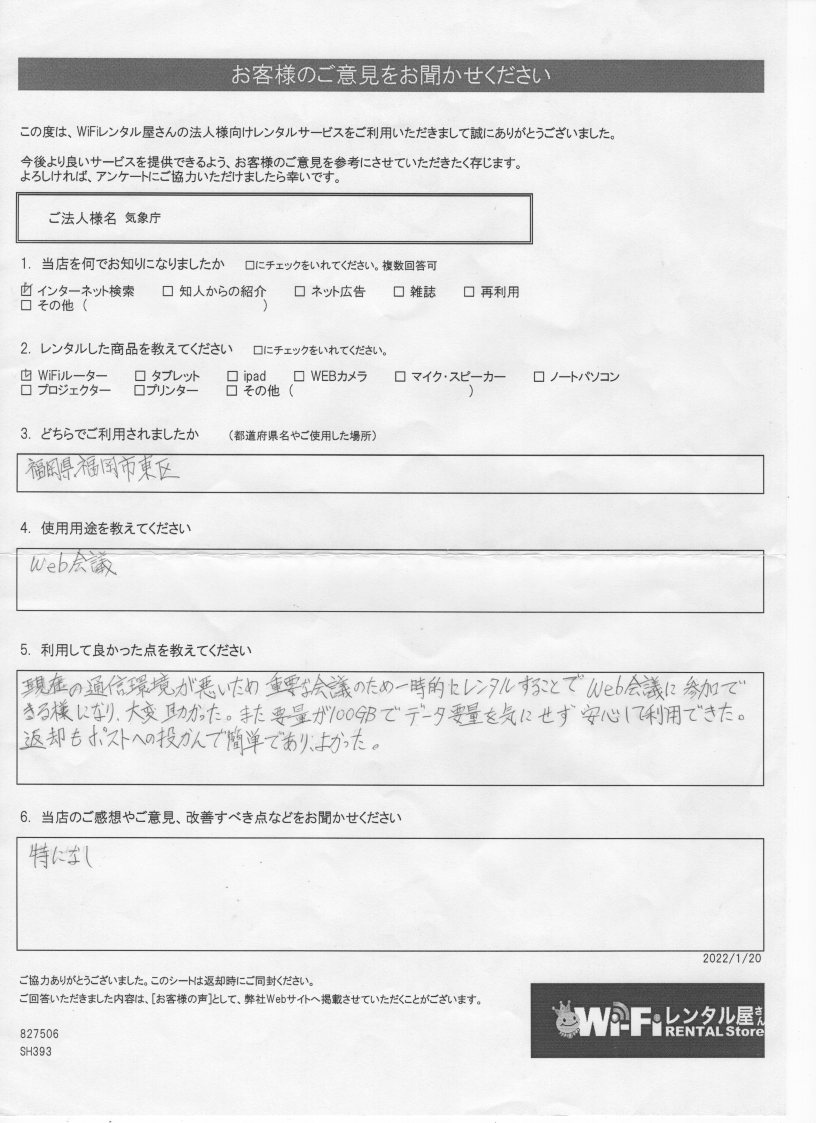 お客様のご意見をお聞かせください
この度は、WiFiレンタル屋さんの法人様向けレンタルサービスをご利用いただきまして誠にありがとうございました。
今後より良いサービスを提供できるよう、お客様のご意見を参考にさせていただきたく存じます。
よろしければ、アンケートにご協力いただけましたら幸いです。
ご法人様名 気象庁
1. 当店を何でお知りになりましたか □にチェックをいれてください。複数回答可
☑ インターネット検索 □ 知人からの紹介 □ ネット広告 □ 雑誌 □ 再利用
□ その他 ( )
2. レンタルした商品を教えてください □にチェックをいれてください。
☑ WiFiルーター □ タブレット □ ipad □ WEBカメラ □ マイク・スピーカー □ ノートパソコン
□ プロジェクター □プリンター □ その他 ( )
3. どちらでご利用されましたか (都道府県名やご使用した場所)
福岡県福岡市東区
4. 使用用途を教えてください
Web会議
5. 利用して良かった点を教えてください
現在の通信環境が悪いため 重要な会議のため一時的にレンタルすることで Web会議に参加で
きる様になり、大変助かった。また要量が100GBでデータ要量を気にせず 安心して利用できた。
返却もポストへの投かんで簡単であり、よかった。
6. 当店のご感想やご意見、改善すべき点などをお聞かせください
特になし
2022/1/20
ご協力ありがとうございました。このシートは返却時にご同封ください。
ご回答いただきました内容は、[お客様の声]として、弊社Webサイトへ掲載させていただくことがございます。
Wi-Fiレンタル屋さん
RENTAL Store
827506
SH393